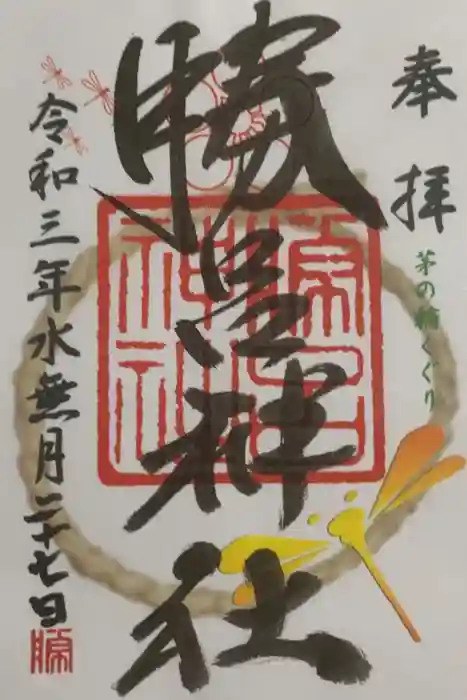 奉拝
茅の輪くぐり
勝呂神社
勝呂
神社
令和三年水無月二十七日